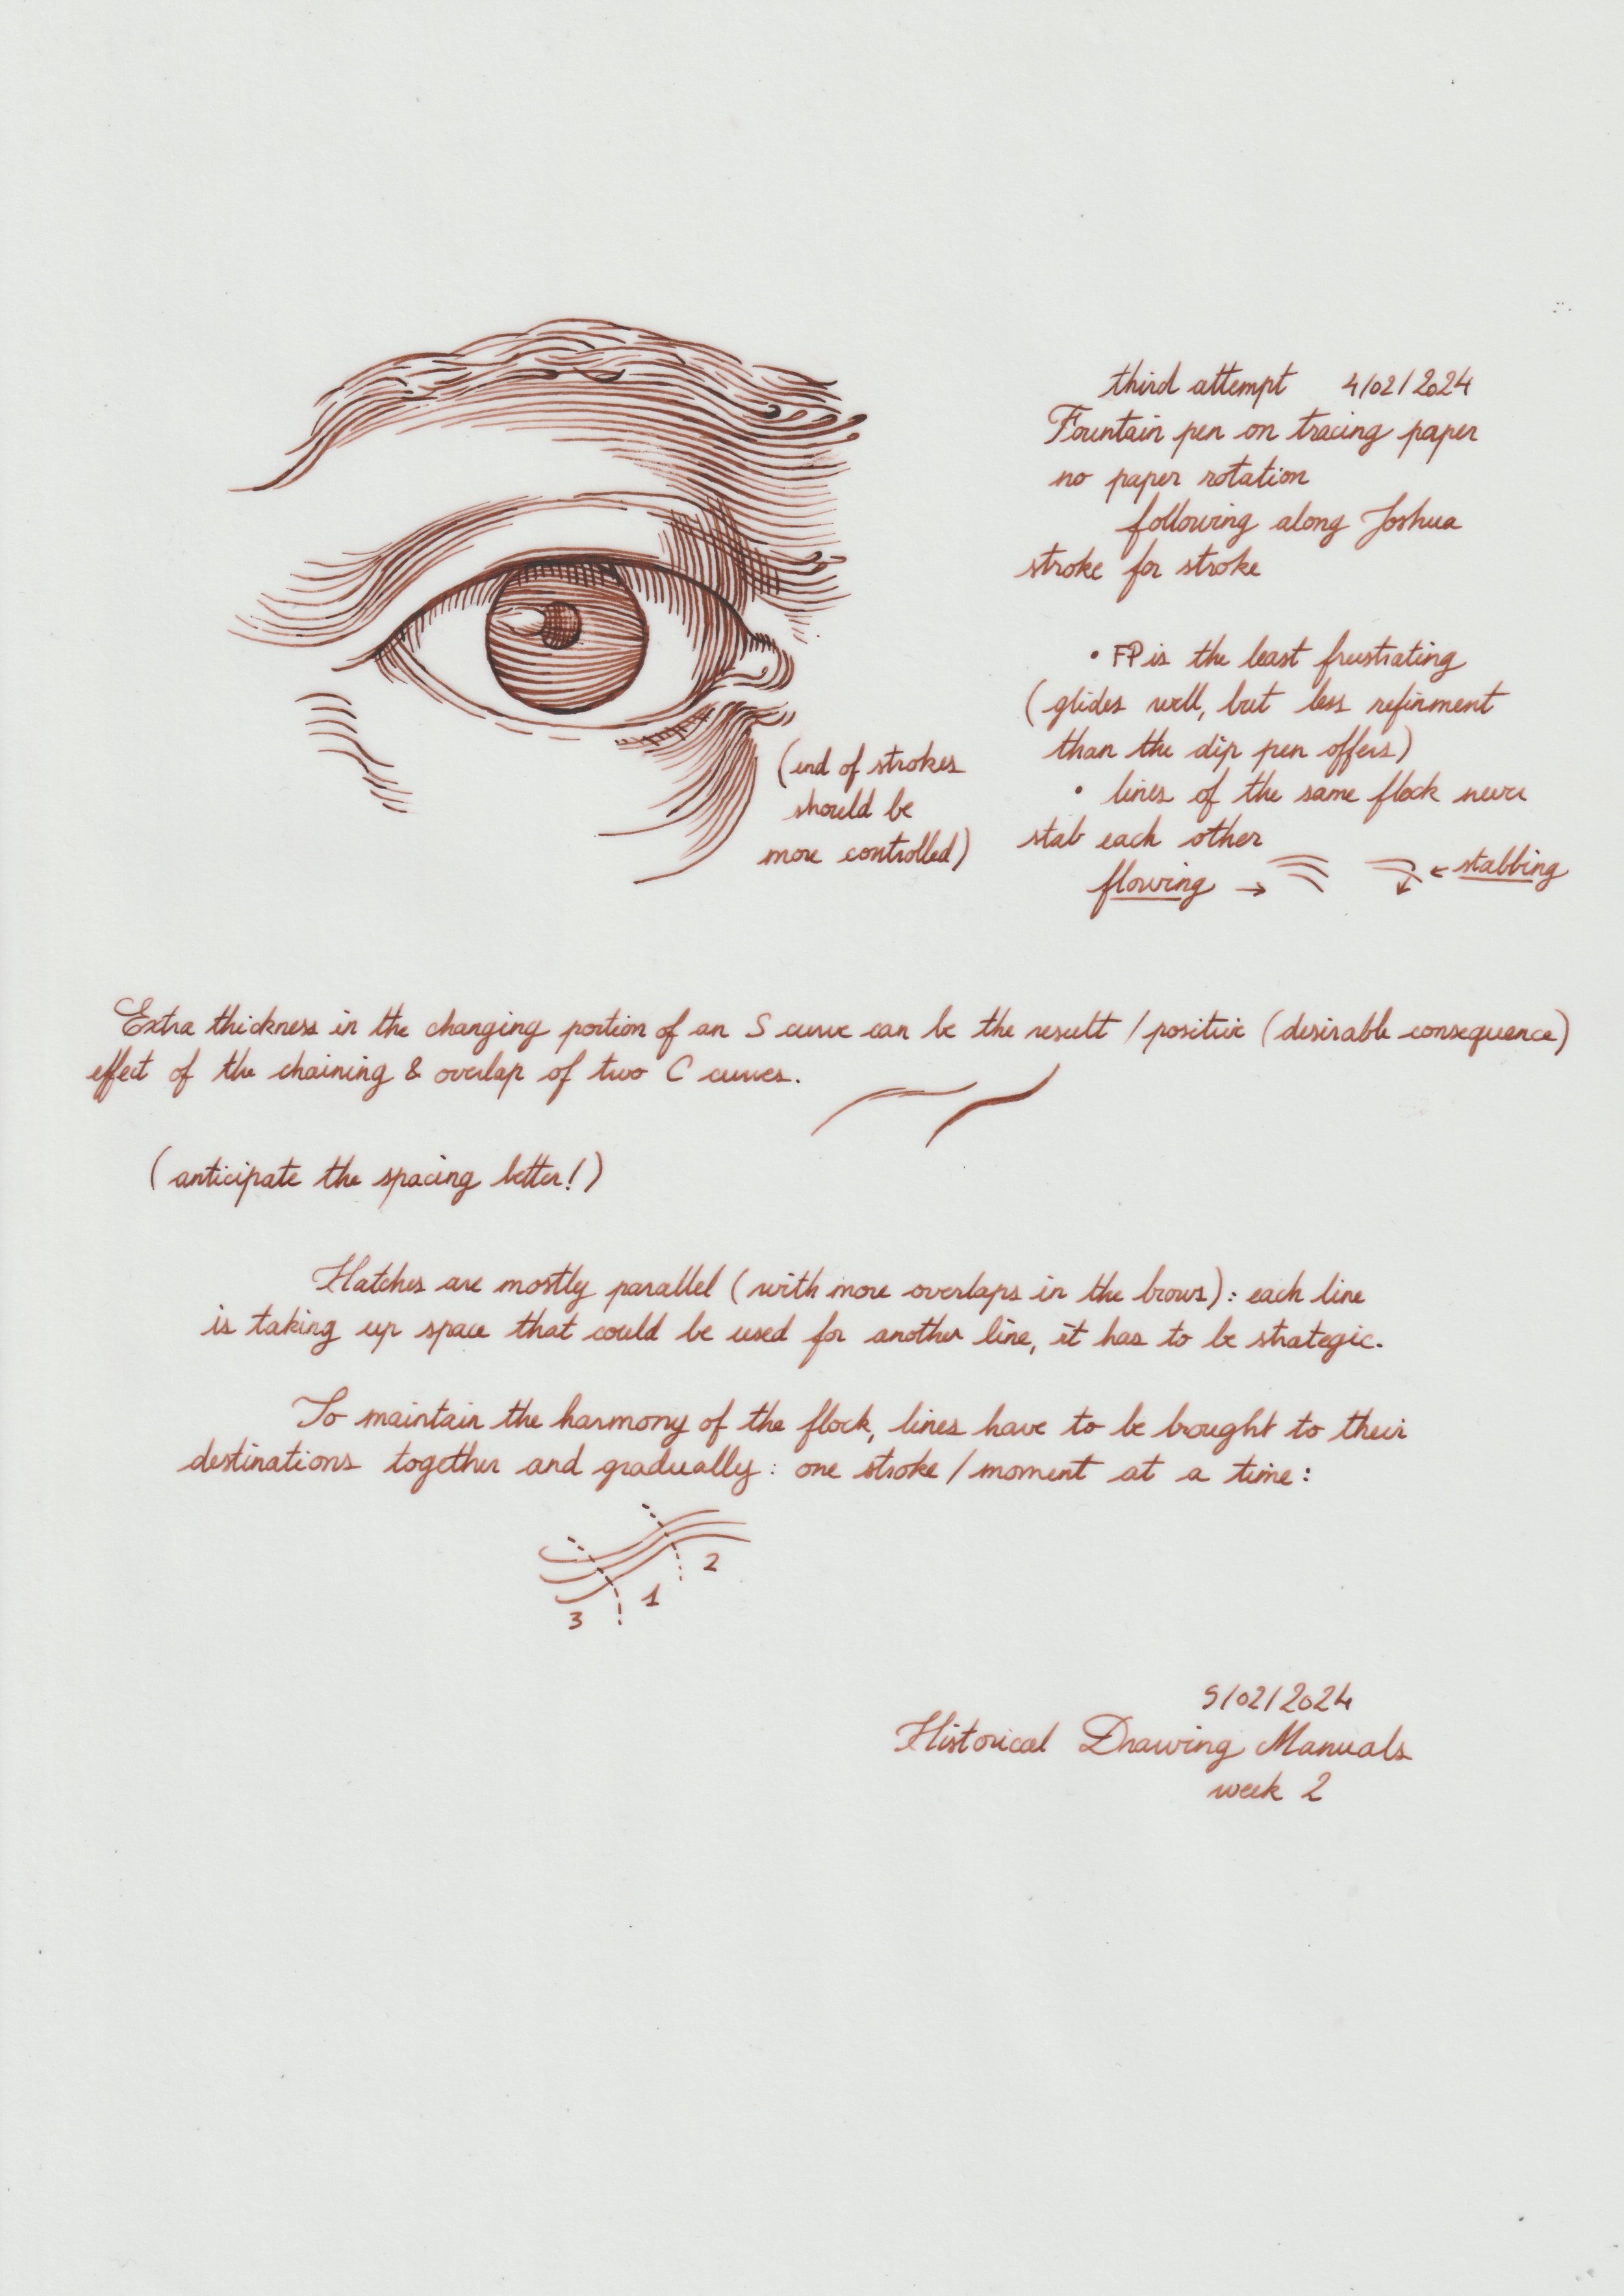 third attempt 4/02/2024
Fountain pen on tracing paper
no paper rotation
following along Joshua
stroke for stroke
• FP is the least frustrating
(glides well, but less refinment
than the dip pen offers)
• lines of the same flock never
stab each other
flowing → ← stabbing
(end of strokes
should be
more controlled)
Extra thickness in the changing portion of an S curve can be the result / positive (desirable consequence)
effect of the chaining & overlap of two C curves.
(anticipate the spacing better!)
Hatches are mostly parallel (with more overlaps in the brows): each line
is taking up space that could be used for another line, it has to be strategic.
To maintain the harmony of the flock, lines have to be brought to their
destinations together and gradually: one stroke / moment at a time:
2
1
3
5/02/2024
Historical Drawing Manuals
week 2